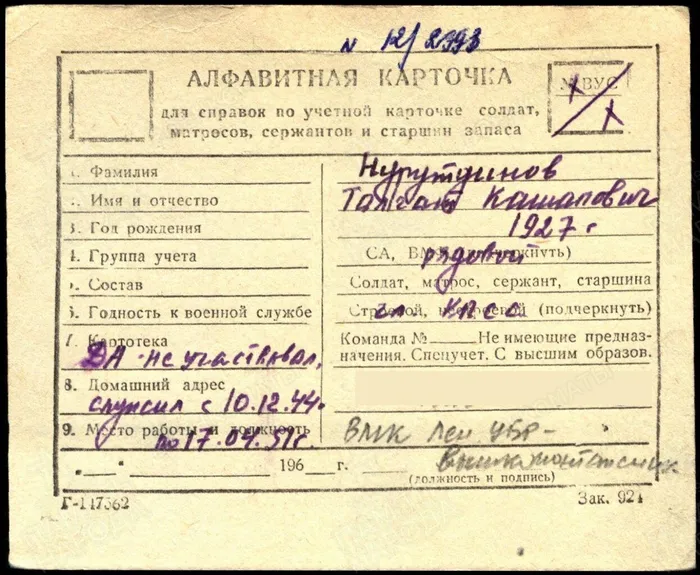 N 12/2993
АЛФАВИТНАЯ КАРТОЧКА
для справок по учетной карточке солдат,
матросов, сержантов и старшин запаса
№ ВУС
1. Фамилия Нурутдинов
2. Имя и отчество Талгат Кашапович
3. Год рождения 1927 г
4. Группа учета СА, (подчеркнуть) рядовой
5. Состав Солдат, матрос, сержант, старшина
6. Годность к военной службе Строевой, нестроевой (подчеркнуть) чл КПСС
7. Картотека Команда № Не имеющие предназ-
ДА не участвовал, начения. Спецучет. С высшим образов.
8. Домашний адрес
служил с 10.12.44г
9. Место работы и должность ВМК Лен УБР-
по 17.04.51г.
"__" 196 г. вышкомонтажник
(должность и подпись)
Г-117362 Зак. 924